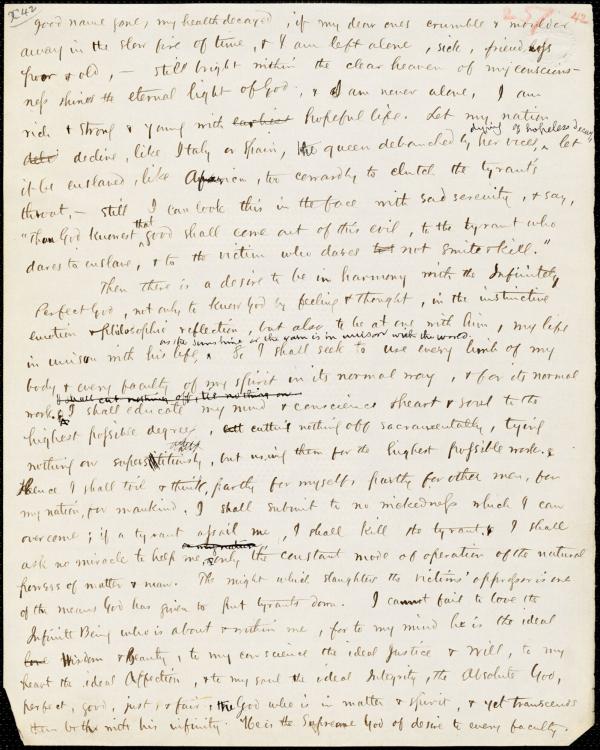 x42
257. 42
good name gone, my health decayed, if my dear ones crumble & moulder
away in the slow fire of time, & I am left alone, sick, friendless
poor & old, — still bright within the clear heaven of my conscious-
ness shines the eternal light of God, & I am never alone, I am
rich & strong & young with hopeful life. Let my nation
dying of hopeless decay,
decline, like Italy or Spain, the queen debauched by her vices, let
it be enslaved, like too cowardly to clutch the tyrant's
throat, — still I can look this in the face with sad serenity, & say,
that
"Thou God knowest good shall come out of this evil, to the tyrant who
dares to enslave, & to the victim who dares not smite & kill."
Then there is a desire to be in harmony with the Infinitely
Perfect God, not only to know God by feeling & thought, in the instinctive
emotion & philosophic reflection, but also to be at one with him, my life
as the sunshine or the rain is in unison with the world.
in unison with his life. So I shall seek to use every limb of my
body & every faculty of my spirit in its normal way, & for its normal
I shall cut nothing off, tie nothing on
work. I shall educate my mind & conscience & heart & soul to the
highest possible degree, cutting nothing off sacramentally, tying
nothing on superstitiously, but using them for the highest possible work.
Hence I shall toil & think, partly for myself, partly for other men, for
my nation, for mankind. I shall submit to no wickedness which I can
overcome; if a tyrant assail me, I shall kill the tyrant, & I shall
or my nature
ask no miracle to help me, only the constant mode of operation of the natural
powers of matter & man. The might which slaughters the victims' oppressor is one
of the means God has given to put tyrants down. I cannot fail to love the
Infinite Being who is about & within me, for to my mind he is the ideal
Wisdom & Beauty, to my conscience the ideal Justice & Will, to my
heart the ideal Affection, & to my soul the ideal Integrity, the Absolute God,
perfect, good, just, & fair, the God who is in matter & spirit, & yet transcends
them both with his infinity. He is the Supreme God of desire to every faculty.